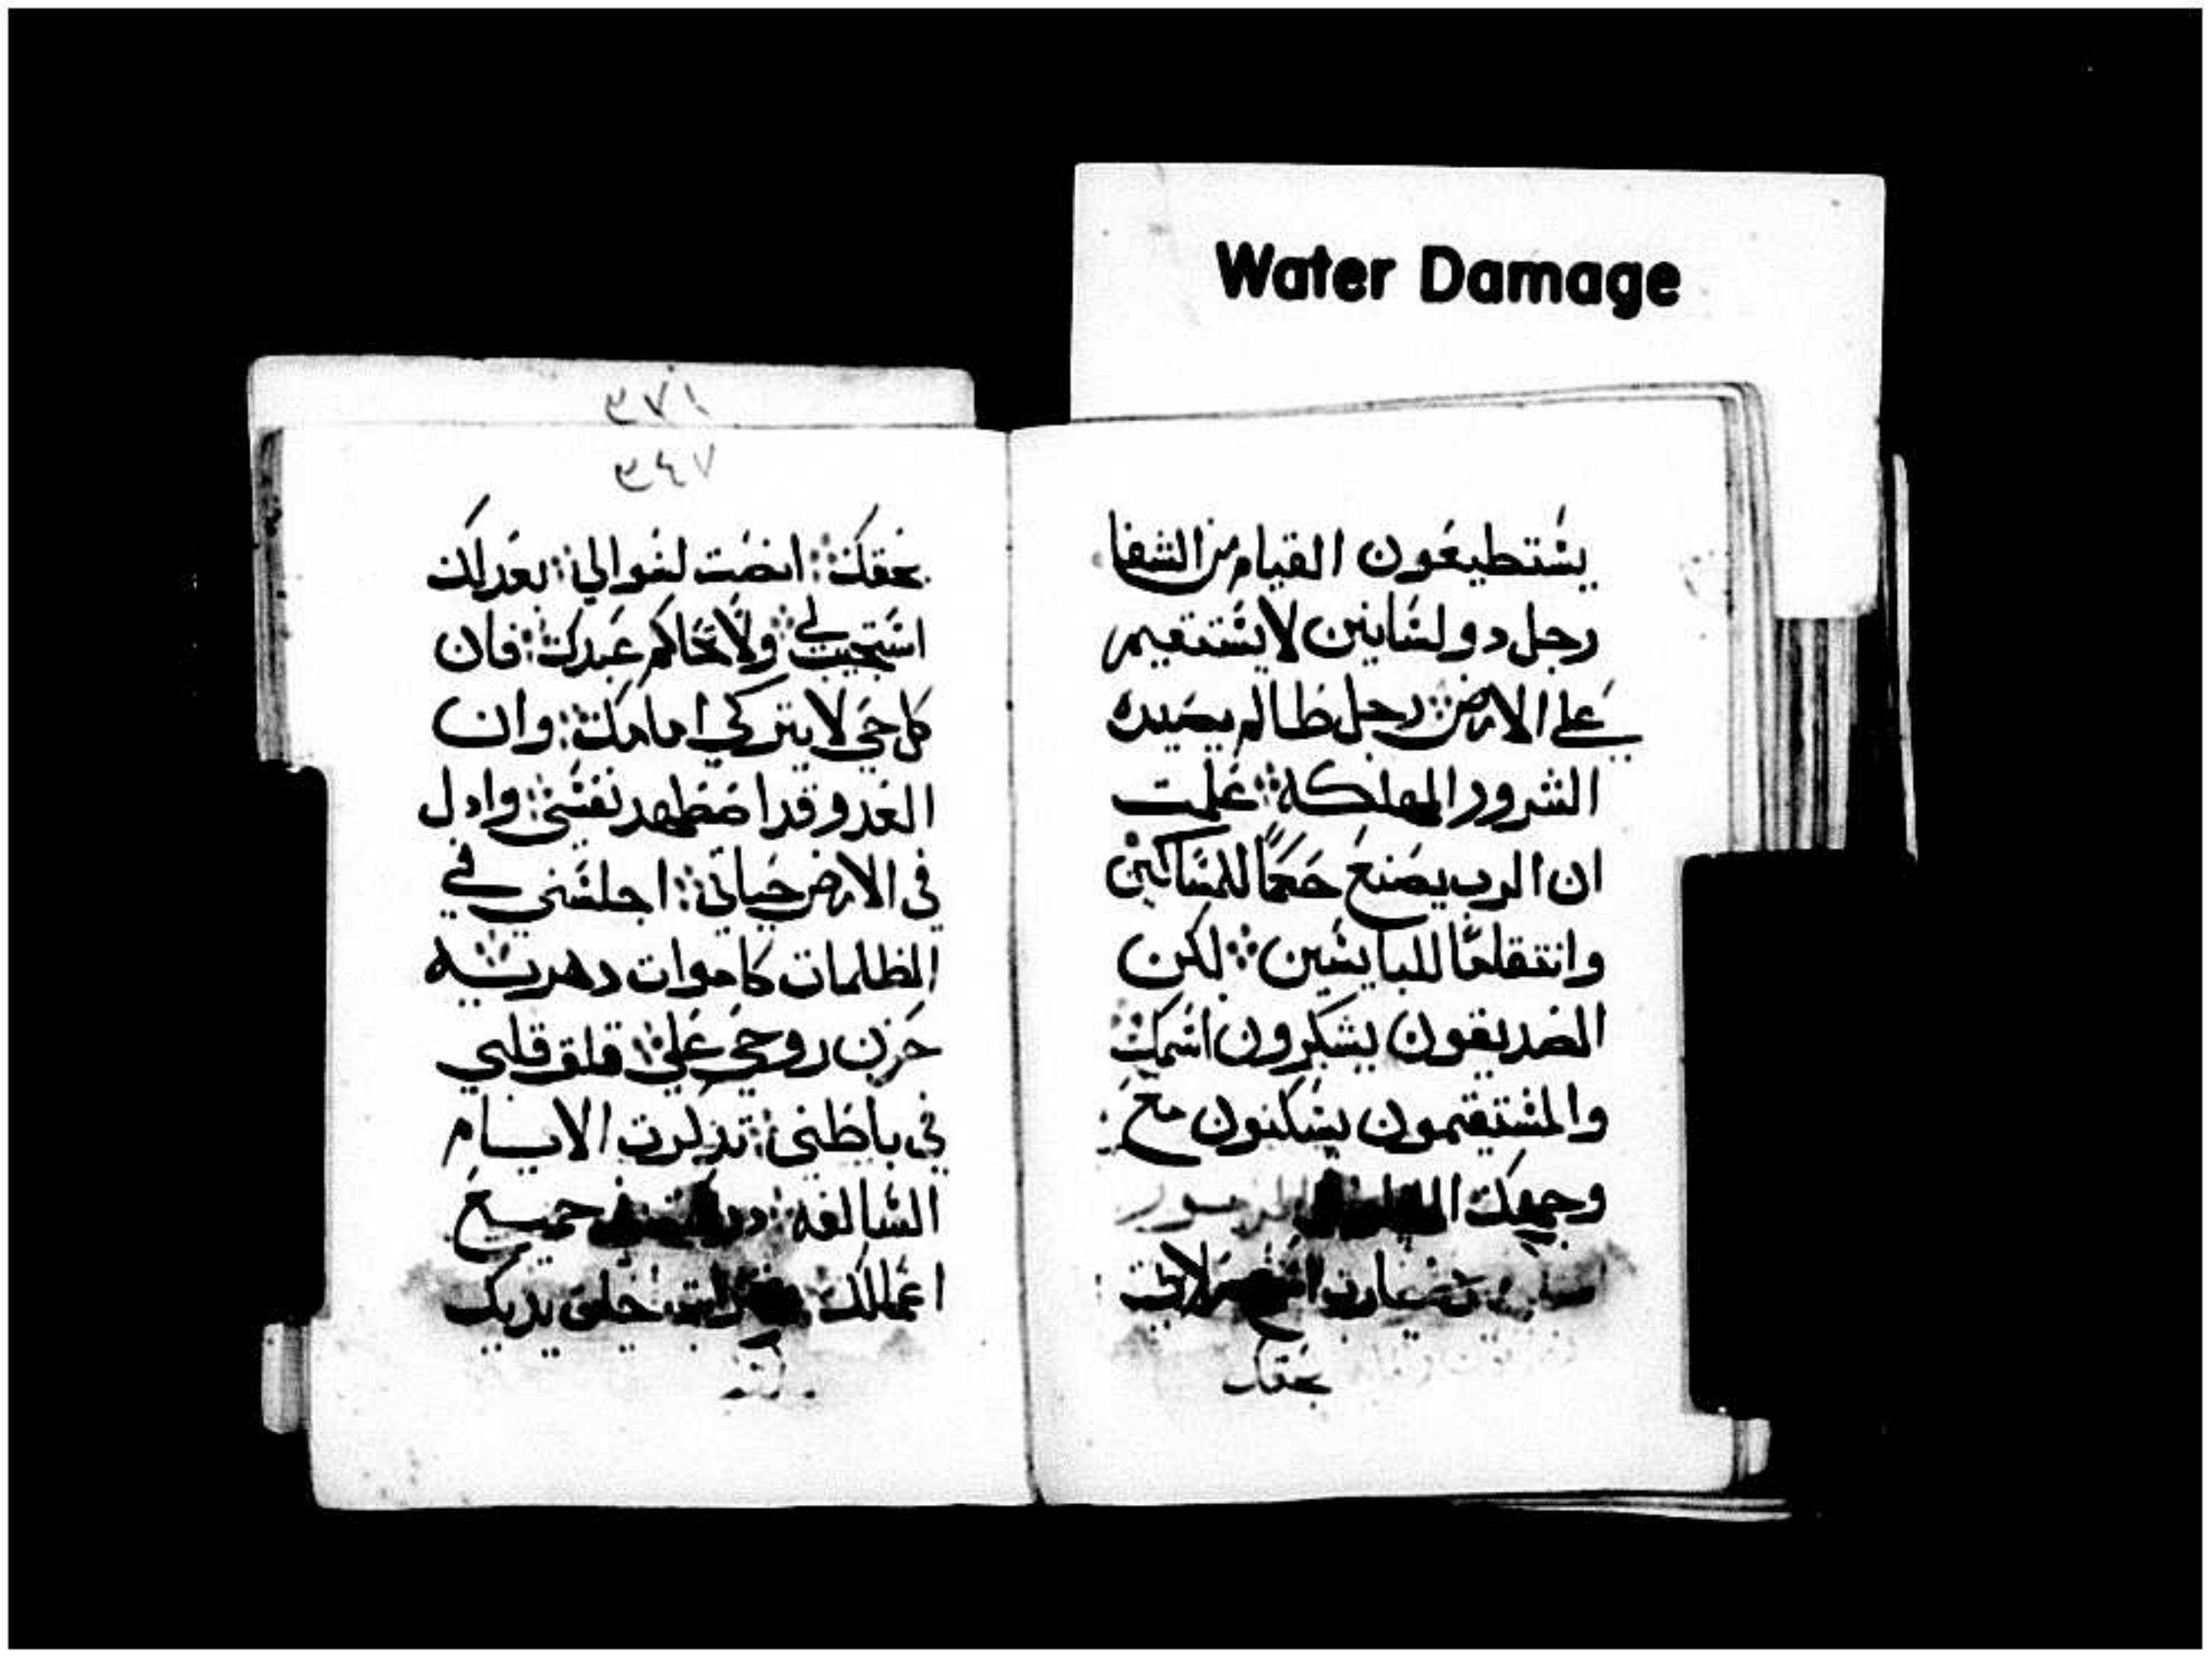 Water Damage
يشتطيعون القيام من الشفا
رجل دو لسانين لا يشتقيم
علي الارض ჻ رجل ظالم يصيده
الشرور المهلكة ჻ علمت
ان الرب يصنع حكمًا للمساكين
وانتقامًا للبايسين ჻ لكن
الصديقون يشكرون اسمك ჻
والمستقيمون يسكنون مع
وجهك المزمور
بحقك
٣٧١
٣٤٧
بحقك ჻ انصت لسوالي ჻ بعدلك
استجيب لي ჻ ولا تحاكم عبدك ჻ فان
كل حي لا يتزكي امامك ჻ وان
العدو قد اضطهد نفسي ჻ واذل
في الارض حياتي ჻ اجلسني في
الظلمات كاموات دهريه
حزن روحي علي ჻ قلق قلبي
في باطني ჻ تذكرت الايام
السالفه ჻ جميع
اعمالك ჻ خلق يديك